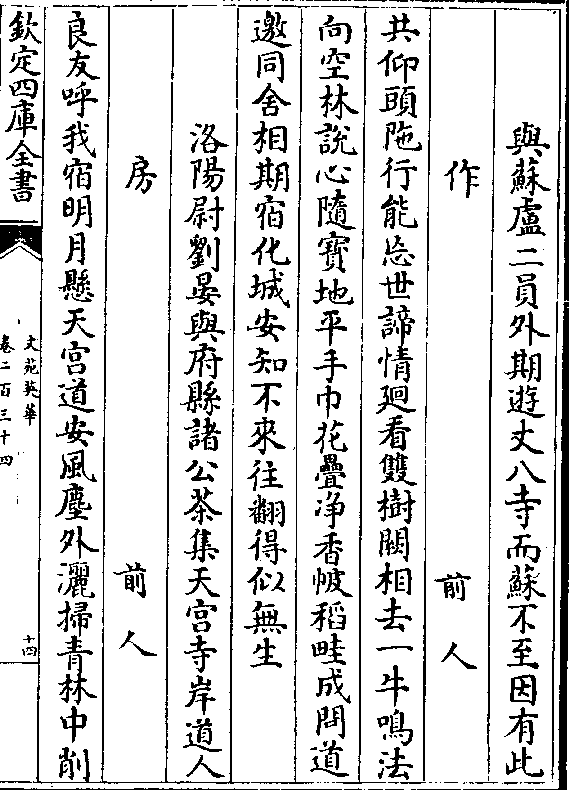 與蘇盧二員外期遊丈八寺而蘇不至因有此
作　前人
共仰頭陁行能忘世諦情廻看雙樹闕相去一牛鳴法
向空林說心隨寶地平手巾花疊净香帔稻畦成問道
邀同舍相期宿化城安知不來往翻得似無生
洛陽尉劉晏與府縣諸公茶集天宮寺岸道人
房　前人
良友呼我宿明月懸天宮道安風塵外灑掃青林中削
欽定四庫全書
文苑英華
卷二百三十四
十四